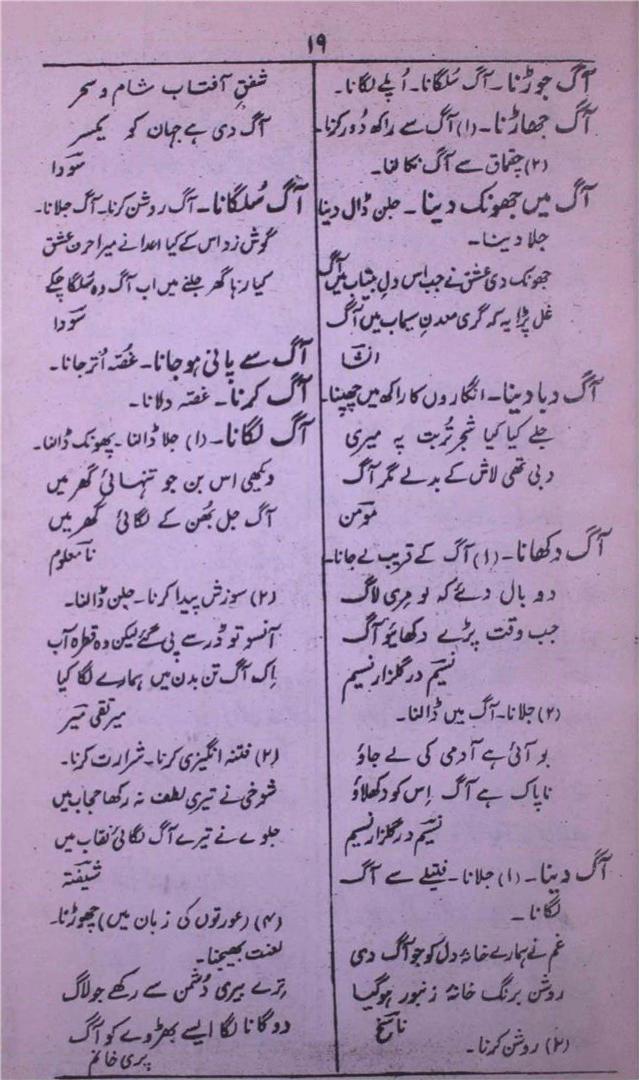 ۱۹
آگ جوڑنا۔ آگ سُلگانا۔ اُپلے لگانا۔
آگ جھاڑنا۔ (۱) آگ سے راکھ دُور کرنا۔
(۲) چقماق سے آگ نکالنا۔
آگ میں جھونک دینا۔ جلن ڈال دینا
جلا دینا۔
جھونک دی عشق نے جب اس دلِ بیتاب میں آگ
غل پڑا یہ کہ گری معدنِ سیماب میں آگ
انشا
آگ دبا دینا۔ انگاروں کا راکھ میں چھپنا۔
جلے کیا کیا شجر تُربت پہ میری
دبی تھی لاش کے بدلے مگر آگ
مومن
آگ دکھانا۔ (۱) آگ کے قریب لے جانا۔
دو بال دئے کہ لو مِری لاگ
جب وقت پڑے دکھائیو آگ
نسیم در گلزار نسیم
(۲) جلانا۔ آگ میں ڈالنا۔
بو آئی ہے آدمی کی لے جاؤ
ناپاک ہے آگ اِس کو دکھلاؤ
نسیم در گلزار نسیم
آگ دینا۔ (۱) جلانا۔ فتیلے سے آگ
لگانا۔
غم نے ہمارے خانۂ دل کو جو آگ دی
روشن برنگ خانۂ زنبور ہو گیا
ناسخ
(۲) روشن کرنا۔
شفقِ آفتاب شام و سحر
آگ دی ہے جہان کو یکسر
سودا
آگ سُلگانا۔ آگ روشن کرنا۔ آگ جلانا۔
گوش زد اس کے کیا اعدا نے میرا حرن عشق
کیا رہا گھر جلنے میں اب آگ وہ سُلگا چکے
سودا
آگ سے پانی ہو جانا۔ غصّہ اُتر جانا۔
آگ کرنا۔ غصّہ دلانا۔
آگ لگانا۔ (۱) جلا ڈالنا۔ پھونک ڈالنا۔
دیکھی اس بن جو تنہائی گھر میں
آگ جل بھُن کے لگائی گھر میں
نامعلوم
(۲) سوزش پیدا کرنا۔ جلن ڈالنا۔
آنسو تو ڈر سے پی گئے لیکن وہ قطرہ آب
اِک آگ تن بدن میں ہمارے لگا گیا
میر تقی میر
(۲) فتنہ انگیزی کرنا۔ شرارت کرنا۔
شوخی نے تیری لطف نہ رکھا حجاب میں
جلوے نے تیرے آگ لگائی نقاب میں
شیفتہ
(۴) (عورتوں کی زبان میں) چھوڑنا۔
لعنت بھیجنا۔
تِرے بیری دُشمن سے رکھے جو لاگ
دو گانا لگا ایسے بھڑوے کو آگ
پری خانم